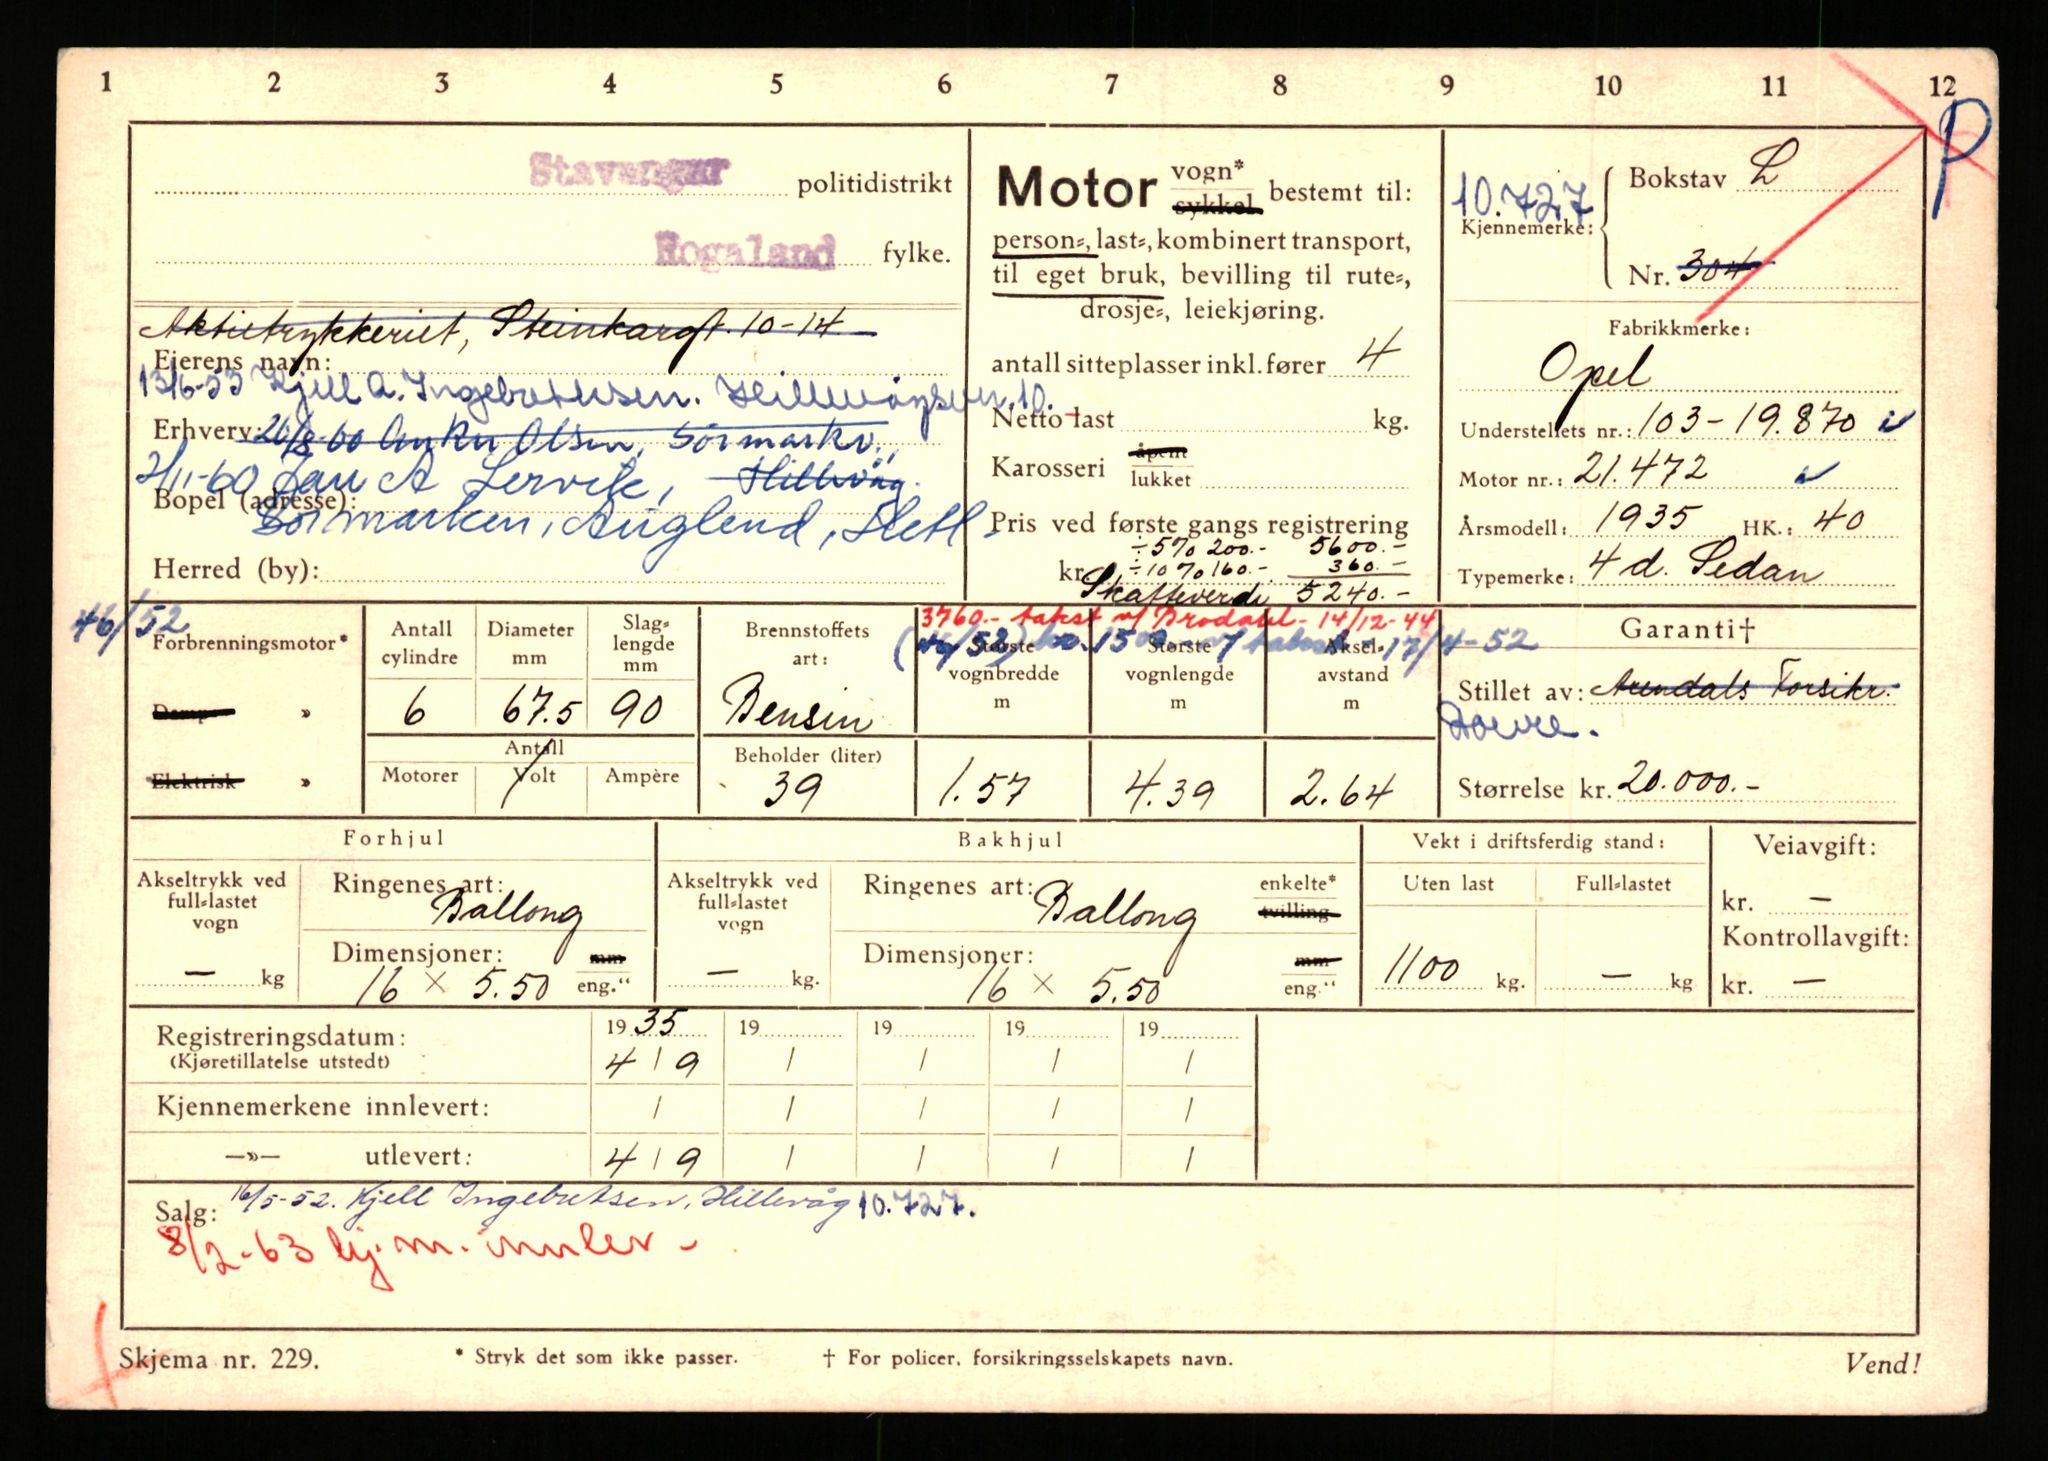 1 2 3 4 5 6 7 8 9 10 11 12
P
Stavanger politidistrikt
Rogaland fylke.
Aktietrykkeriet, Steinkargt. 10-14
Eierens navn:
13/6-53 Kjell A. Ingebretsen. Hillevågsvn. 10.
Erhverv: 26/8-60 Anker Olsen, Sørmarkv.,
Hillevåg.
2/11-60 Jan A Lervik,
Bopel (adresse):
Sørmarken, Auglend, Hetl.
Herred (by):
Motor vogn* sykkel bestemt til:
person-, last-, kombinert transport,
til eget bruk, bevilling til rute-,
drosje-, leiekjøring.
antall sitteplasser inkl. fører 4
Netto last kg.
Karosseri åpent lukket
Pris ved første gangs registrering
÷ 5% 200.- 5600.-
kr. ÷ 10% 160.- 360.-
Skatteverdi 5240.-
10.727
Kjennemerke: Bokstav L
Nr. 304
Fabrikkmerke:
Opel
Understellets nr.: 103-19.870
Motor nr.: 21.472
Årsmodell: 1935 HK.: 40
Typemerke: 4 d. Sedan
46/52
3760.- takst v/ Brodahl - 14/12-44
(46/52) kr. 1500 v/ takst - 17/4-52
Forbrenningsmotor*
Damp »
Elektrisk »
Antall cylindre
6
Diameter mm
67.5
Slaglengde mm
90
Antall
Motorer Volt Ampère
Brennstoffets art:
Bensin
Beholder (liter)
39
Største vognbredde m
1.57
Største vognlengde m
4.39
Akselavstand m
2.64
Garanti†
Stillet av: Arendals Forsikr.
Størrelse kr. 20.000.-
Forhjul
Akseltrykk ved full-lastet vogn
— kg
Ringenes art:
Ballong
Dimensjoner: mm
16 × 5.50 eng."
Bakhjul
Akseltrykk ved full-lastet vogn
— kg.
Ringenes art: enkelte*
Ballong tvilling
Dimensjoner: mm
16 × 5.50 eng."
Vekt i driftsferdig stand:
Uten last Full-lastet
1100 kg. — kg
Veiavgift:
kr. —
Kontrollavgift:
kr. —
Registreringsdatum: 19 35 19 19 19 19
(Kjøretillatelse utstedt) 4 / 9 / / / /
Kjennemerkene innlevert: / / / / /
—»— utlevert: 4 / 9 / / / /
Salg: 16/5-52. Kjell Ingebretsen, Hillevåg 10.727.
8/2-63 kj.m. innlev -
Skjema nr. 229. * Stryk det som ikke passer. † For policer, forsikringsselskapets navn. Vend!